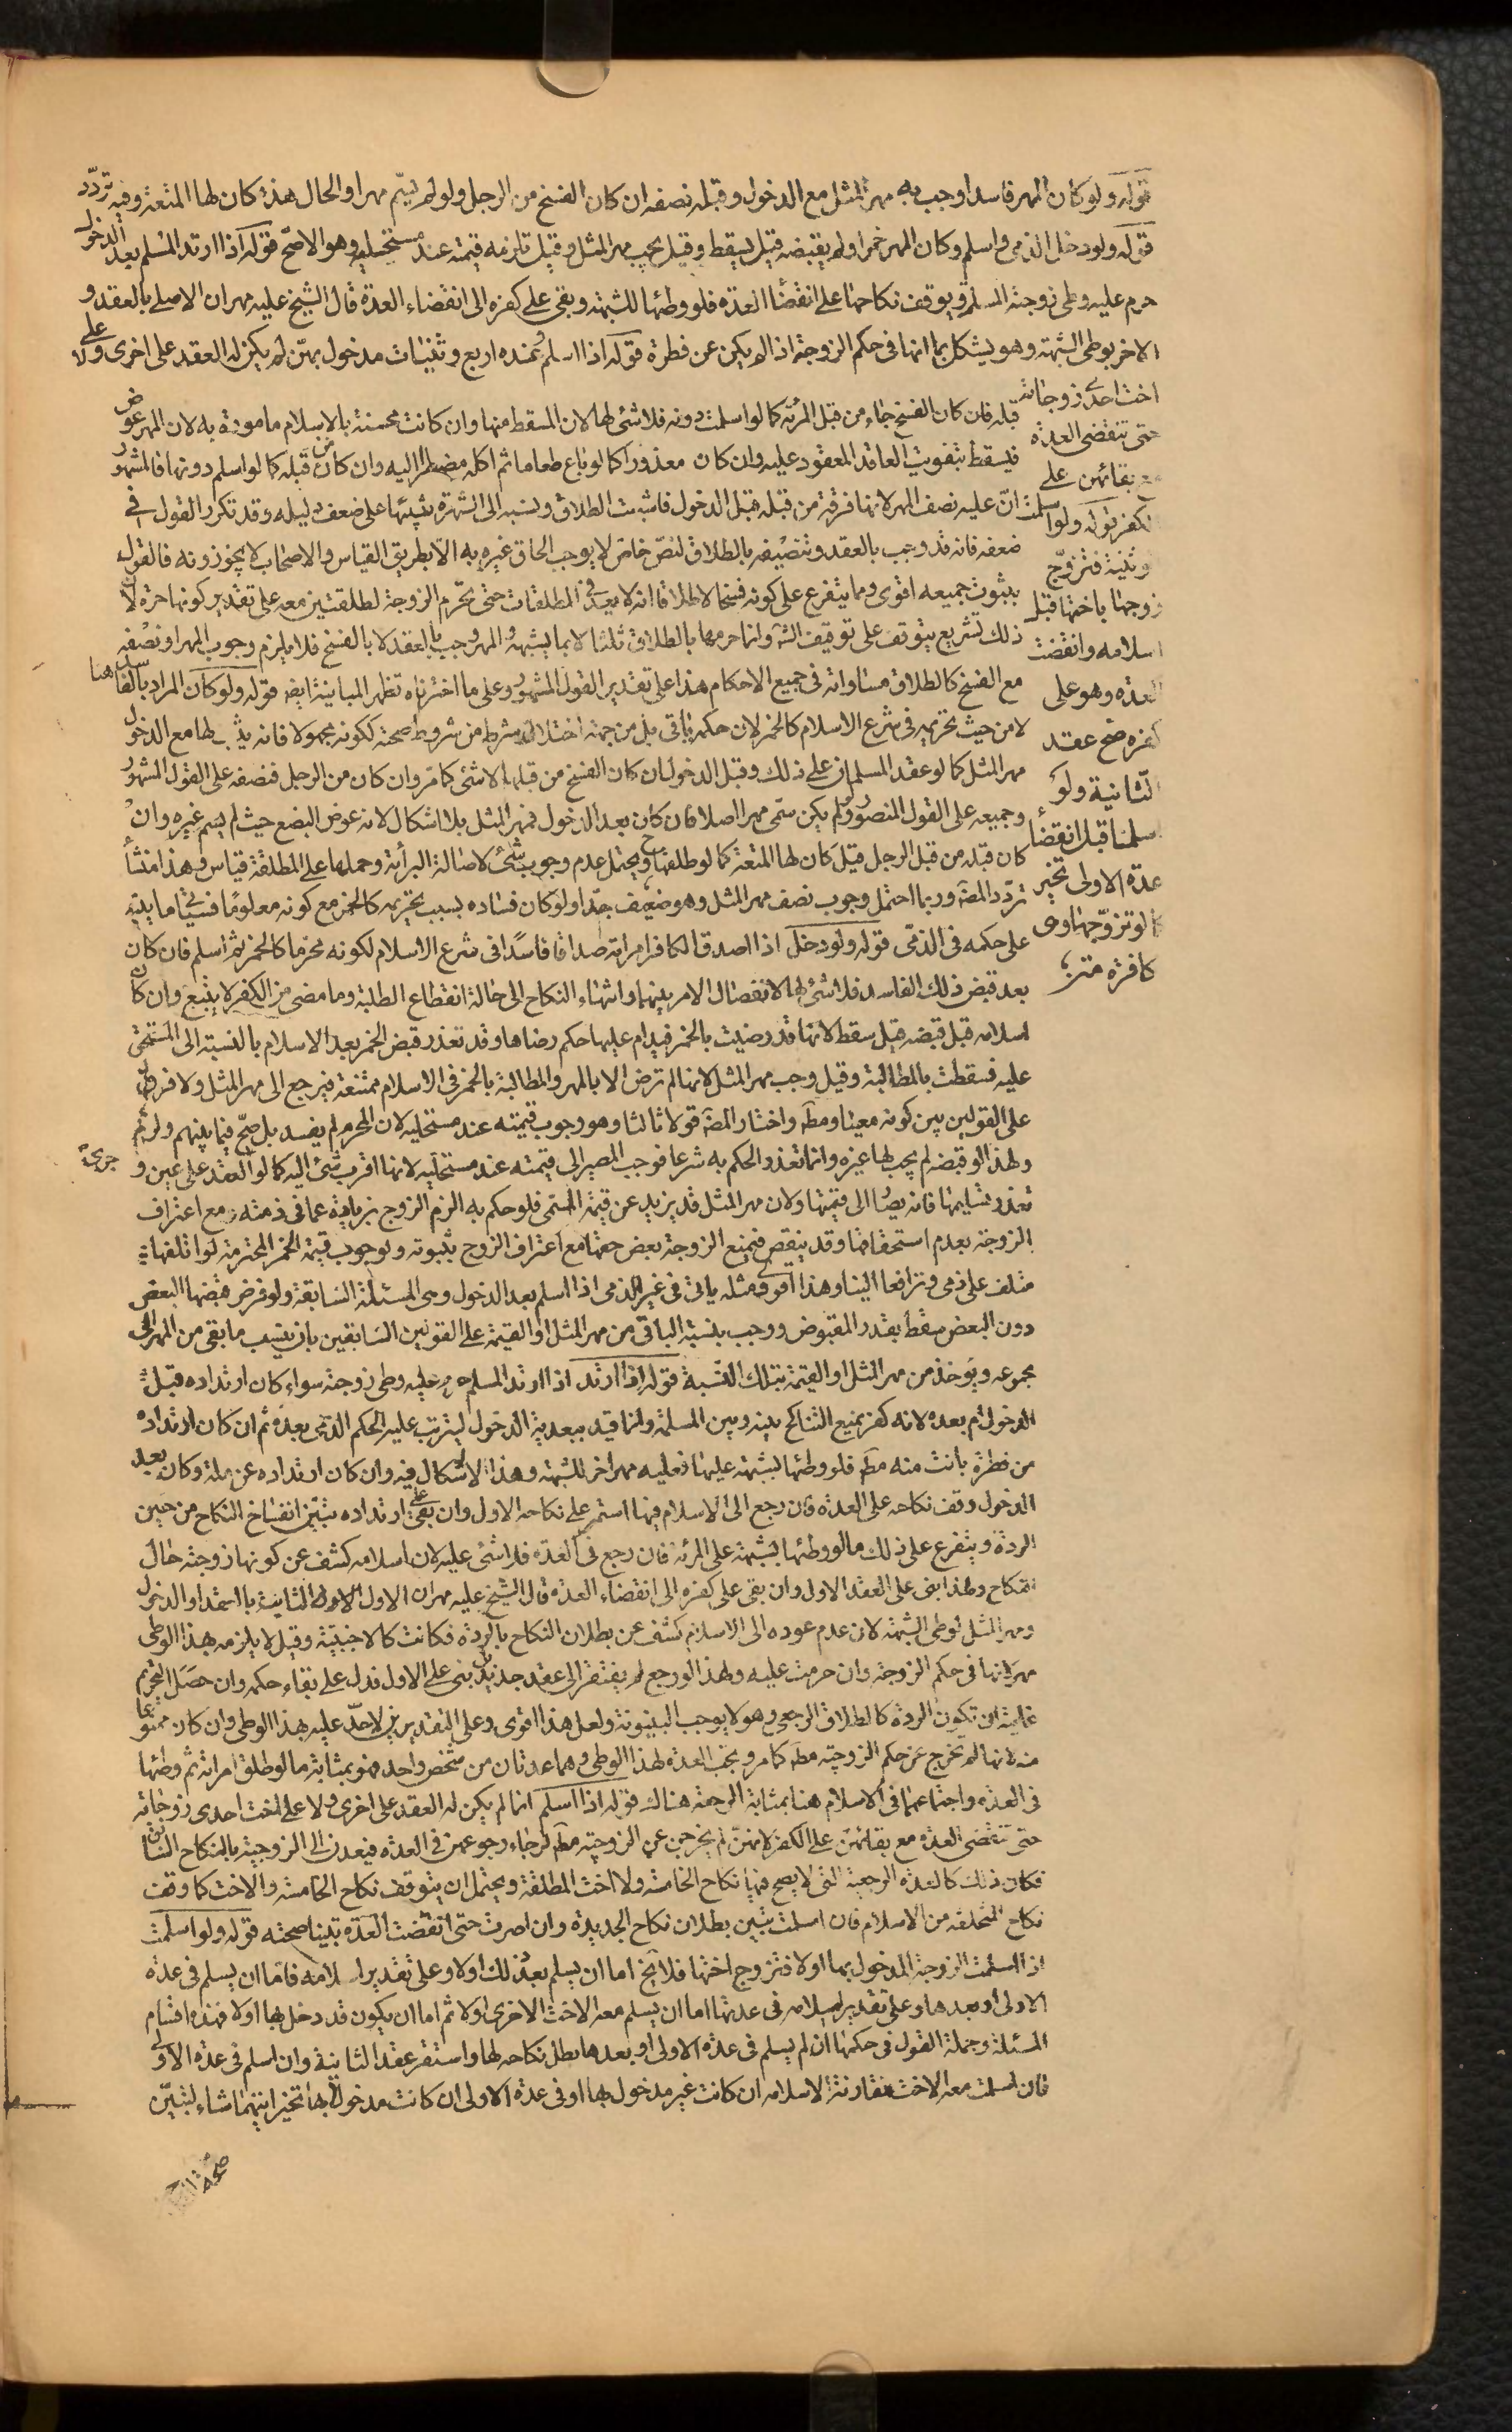 قوله ولو كان المهر فاسدا وجب به مهر المثل مع الدخول وقبله نصفه ان كان الفسخ من الرجل ولو لم يسم مهرا والحال هذه كان لها المتعة وفيه تردّد
قوله ولو دخل الذمي واسلم وكان المهر خمرا ولم يقبضه قيل يسقط وقيل يجب مهر المثل وقيل تلزمه قيمته عند مستحليه وهو الاصحّ قوله اذا ارتد المسلم بعد الدخول
حرم عليه وطى زوجته المسلمة ويوقف نكاحها على انقضاء العدة فلو وطئها للشبهة وبقى على كفره الى انقضاء العدة قال الشيخ عليه مهران الاصلى بالعقد و
الاخر بوطى الشبهة وهو يشكل بما انها فى حكم الزوجة اذا لم يكن عن فطرة قوله اذا اسلم وعنده اربع وثنيات مدخول بهنّ لم يكن له العقد على اخرى ولا على
اخت احدى زوجاته
حتى تنقضى العدة
مع بقائهن على
الكفر قوله ولو اسلمت
وثنية فتزوّج
زوجها باختها قبل
اسلامه وانقضت
العدة وهو على
كفره صح عقد
الثانية ولو
اسلما قبل انقضاء
عدة الاولى تخير
كما لو تزوّجها وهى
كافرة متن
قبله فان كان الفسخ جاء من قبل المرئة كما لو اسلمت دونه فلا شئ لها لان المسقط منها وان كانت محسنة بالاسلام مامورة به لان المهر عوض
فيسقط بتفويت العاقد المعقود عليه وان كان معذورا كما لو باع طعاما ثم اكله مضطرا اليه وان كان من قبله كما لو اسلم دونها فالمشهور
انّ عليه نصف المهر لانها فرقة من قبله قبل الدخول فاشبهت الطلاق ونسبه الى الشهرة تنبيها على ضعف دليله وقد تكرر القول فى
ضعفه فانه قد وجب بالعقد وتنصيفه بالطلاق لنصّ خاص لا يوجب الحاق غيره به الا بطريق القياس والاصحاب لا يجوزونه فالقول
بثبوت جميعه اقوى ومما يتفرع على كونه فسخا لا طلاقا انه لا يعد فى المطلقات حتى تحرّم الزوجة لطلقتين معه على تقدير كونها حرة لان
ذلك تشريع يتوقف على توقيف الش وانما حرمها بالطلاق ثلثا لا بما يشبهه والمهر وجب بالعقد لا بالفسخ فلا يلزم وجوب المهر او نصفه
مع الفسخ كالطلاق مساواته فى جميع الاحكام هذا على تقدير القول المشهور وعلى ما اخترناه تظهر المباينة ايضا قوله ولو كان المراد بالفاسد هنا
لا من حيث تحريمه فى شرع الاسلام كالخمر لان حكمه ياتى بل من جهة اختلال شرط من شروط صحته ككونه مجهولا فانه يثبت لها مع الدخول
مهر المثل كما لو عقد المسلمان على ذلك وقبل الدخول ان كان الفسخ من قبلها لا شئ كما مرّ وان كان من الرجل فنصفه على القول المشهور
وجميعه على القول المنصور ولو لم يكن سمّى مهرا اصلا فان كان بعد الدخول فمهر المثل بلا اشكال لانه عوض البضع حيث لم يسم غيره وان
كان قبله من قبل الرجل قيل كان لها المتعة كما لو طلقها ويحتمل عدم وجوب شئ لاصالة البرأئة وحملها على المطلقة قياس وهذا منشأ
تردّد المصّ وربما احتمل وجوب نصف مهر المثل وهو ضعيف جدّا ولو كان فساده بسبب تحريمه كالخمر مع كونه معلوما فسياتى ما ينبّه
على حكمه فى الذمى قوله ولو دخل اذا اصدق الكافر امراته صداقا فاسدا فى شرع الاسلام لكونه محرّما كالخمر ثم اسلم فان كان
بعد قبض ذلك الفاسد فلا شئ لها لانفصال الامر بينهما وانتهاء النكاح الى حالة انقطاع الطلبة وما مضى من الكفر لا يتبع وان كان
اسلامه قبل قبضه قيل سقط لانها قد رضيت بالخمر فيدام عليها حكم رضاها وقد تعذر قبض الخمر بعد الاسلام بالنسبة الى المستحق
عليه فسقطت بالمطالبة وقيل وجب مهر المثل لانها لم ترض الا بالمهر والمطالبة بالخمر فى الاسلام ممتنعة فيرجع الى مهر المثل ولا فرق
على القولين بين كونه معينا ومطم واختار المصّ قولا ثالثا وهو وجوب قيمته عند مستحليه لان المحرم لم يفسد بل صحّ فيما بينهم
ولهذا لو قبضه لم يجب لها غيره وانما تعذر الحكم به شرعا فوجب المصير الى قيمته عند مستحليه لانها اقرب شئ اليه كما لو العقد على عين و جرى
تعذر تسليمها فانه يصا الى قيمتها ولان مهر المثل قد يزيد عن قيمة المسمى فلو حكم به الزم الزوج بزيادة عما فى ذمته مع اعتراف
الزوجة بعدم استحقاقها وقد ينقص فيمنع الزوجة بعض حقها مع اعتراف الزوج بثبوته ولوجوب قيمة الخمر المحترمة لو اتلفها
متلف على ذمى وترافعا الينا وهذا اقوى ومثله ياتى فى غير الذمى اذا اسلم بعد الدخول وهى المسئلة السابقة ولو فرض قبضها البعض
دون البعض سقط بقدر المقبوض ووجب بنسبة الباقى من مهر المثل او القيمة على القولين السابقين بان ينسب ما بقى من المهر الى
مجموعه ويؤخذ من مهر المثل او القيمة بتلك النسبة قوله اذا ارتد اذا ارتد المسلم حرم عليه وطى زوجته سواء كان ارتداده قبل
الدخول ام بعده لانه كفر يمنع التناكح بينه وبين المسلمة وانما قيد ببعدية الدخول ليترتب عليه الحكم الذى بعده ثم ان كان ارتداده
من فطرة بانت منه مطم فلو وطئها بشبهة عليها فعليه مهر اخر للشبهة وهذا لا اشكال فيه وان كان ارتداده عن ملة وكان بعد
الدخول وقف نكاحه على العدة فان رجع الى الاسلام فيها استمر على نكاحه الاول وان بقى على ارتداده تبيّن انفساخ النكاح من حين
الردة ويتفرع على ذلك ما لو وطئها بشبهة على المرئة فان رجع فى العدة فلا شئ عليه لان اسلامه كشف عن كونها زوجته حال
النكاح ولهذا بنى على العقد الاول وان بقى على كفره الى انقضاء العدة قال الشيخ عليه مهران الاول الثابت بالعقد او الدخول
ومهر المثل لوطى الشبهة لان عدم عوده الى الاسلام كشف عن بطلان النكاح بالردة فكانت كالاجنبية وقيل لا يلزمه بهذا الوطى
مهر لانها فى حكم الزوجة وان حرمت عليه ولهذا لو رجع لم يفتقر الى عقد جديد بل بنى على الاول فدل على بقاء حكمه وان حصل التحريم
غايته ان تكون الردة كالطلاق الرجعى وهو لا يوجب البينونة ولعل هذا اقوى وعلى التقديرين لا حدّ عليه بهذا الوطى وان كان ممنوعا
منه لانها لم تخرج عن حكم الزوجية مطم كما مر ويجب العدة لهذا الوطى وهما عدتان من شخص واحد فهو بمثابة ما لو طلق امراته ثم وطئها
فى العدة واجتماعهما فى الاسلام هنا بمثابة الرجعة هناك قوله اذا اسلم انما لم يكن له العقد على اخرى ولا على اخت احدى زوجاته
حتى تنقضى العدة مع بقائهن على الكفر لانهنّ لم يخرجن عن الزوجية مطم لرجاء رجوعهن فى العدة فيعدن الى الزوجية بالنكاح السابق
فكان ذلك كالعدة الرجعية التى لا يصح فيها نكاح الخامسة ولا اخت المطلقة ويحتمل ان يتوقف نكاح الخامسة والاخت كما وقف
نكاح المتخلفة من الاسلام فان اسلمت تبين بطلان نكاح الجديدة وان اصرت حتى انقضت العدة تبينا صحته قوله ولو اسلمت
اذا اسلمت الزوجة المدخول بها اولا فتزوج اختها فلا يخ اما ان يسلم بعد ذلك اولا وعلى تقدير اسلامه فاما ان يسلم فى عدة
الاولى او بعدها وعلى تقدير اسلامه فى عدتها اما ان يسلم معه الاخت الاخرى اولا ثم اما ان يكون قد دخل بها اولا فهذه اقسام
المسئلة وجملة القول فى حكمها ان لم يسلم فى عدة الاولى او بعدها بطل نكاحه لها واستقر عقد الثانية وان اسلم فى عدة الاولى
فان اسلمت معه الاخت مقارنة لاسلامه ان كانت غير مدخول بها او فى عدة الاولى ان كانت مدخولا بها تخير ايتهما شاء لتبيّن
صحة